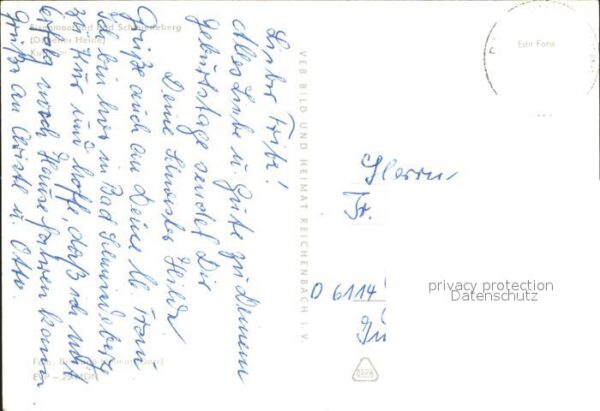 Eisenmoorbad Bad Schmiedeberg
(Dübener Heide)
Lieber Fritz!
Alles Liebe u. Gute zu Deinem
Geburtstage sendet Dir
Deine Schwester Hilde
Grüße auch an Deine lb. Frau
Ich bin hier in Bad Schmiedeberg
zur Kur und hoffe, daß ich mit
Erfolg nach Hause fahren kann
Grüße an u. Otto.
VEB BILD UND HEIMAT REICHENBACH I. V.
Herrn
Fr.
D 6114
privacy protection
Datenschutz
Foto:
EVP